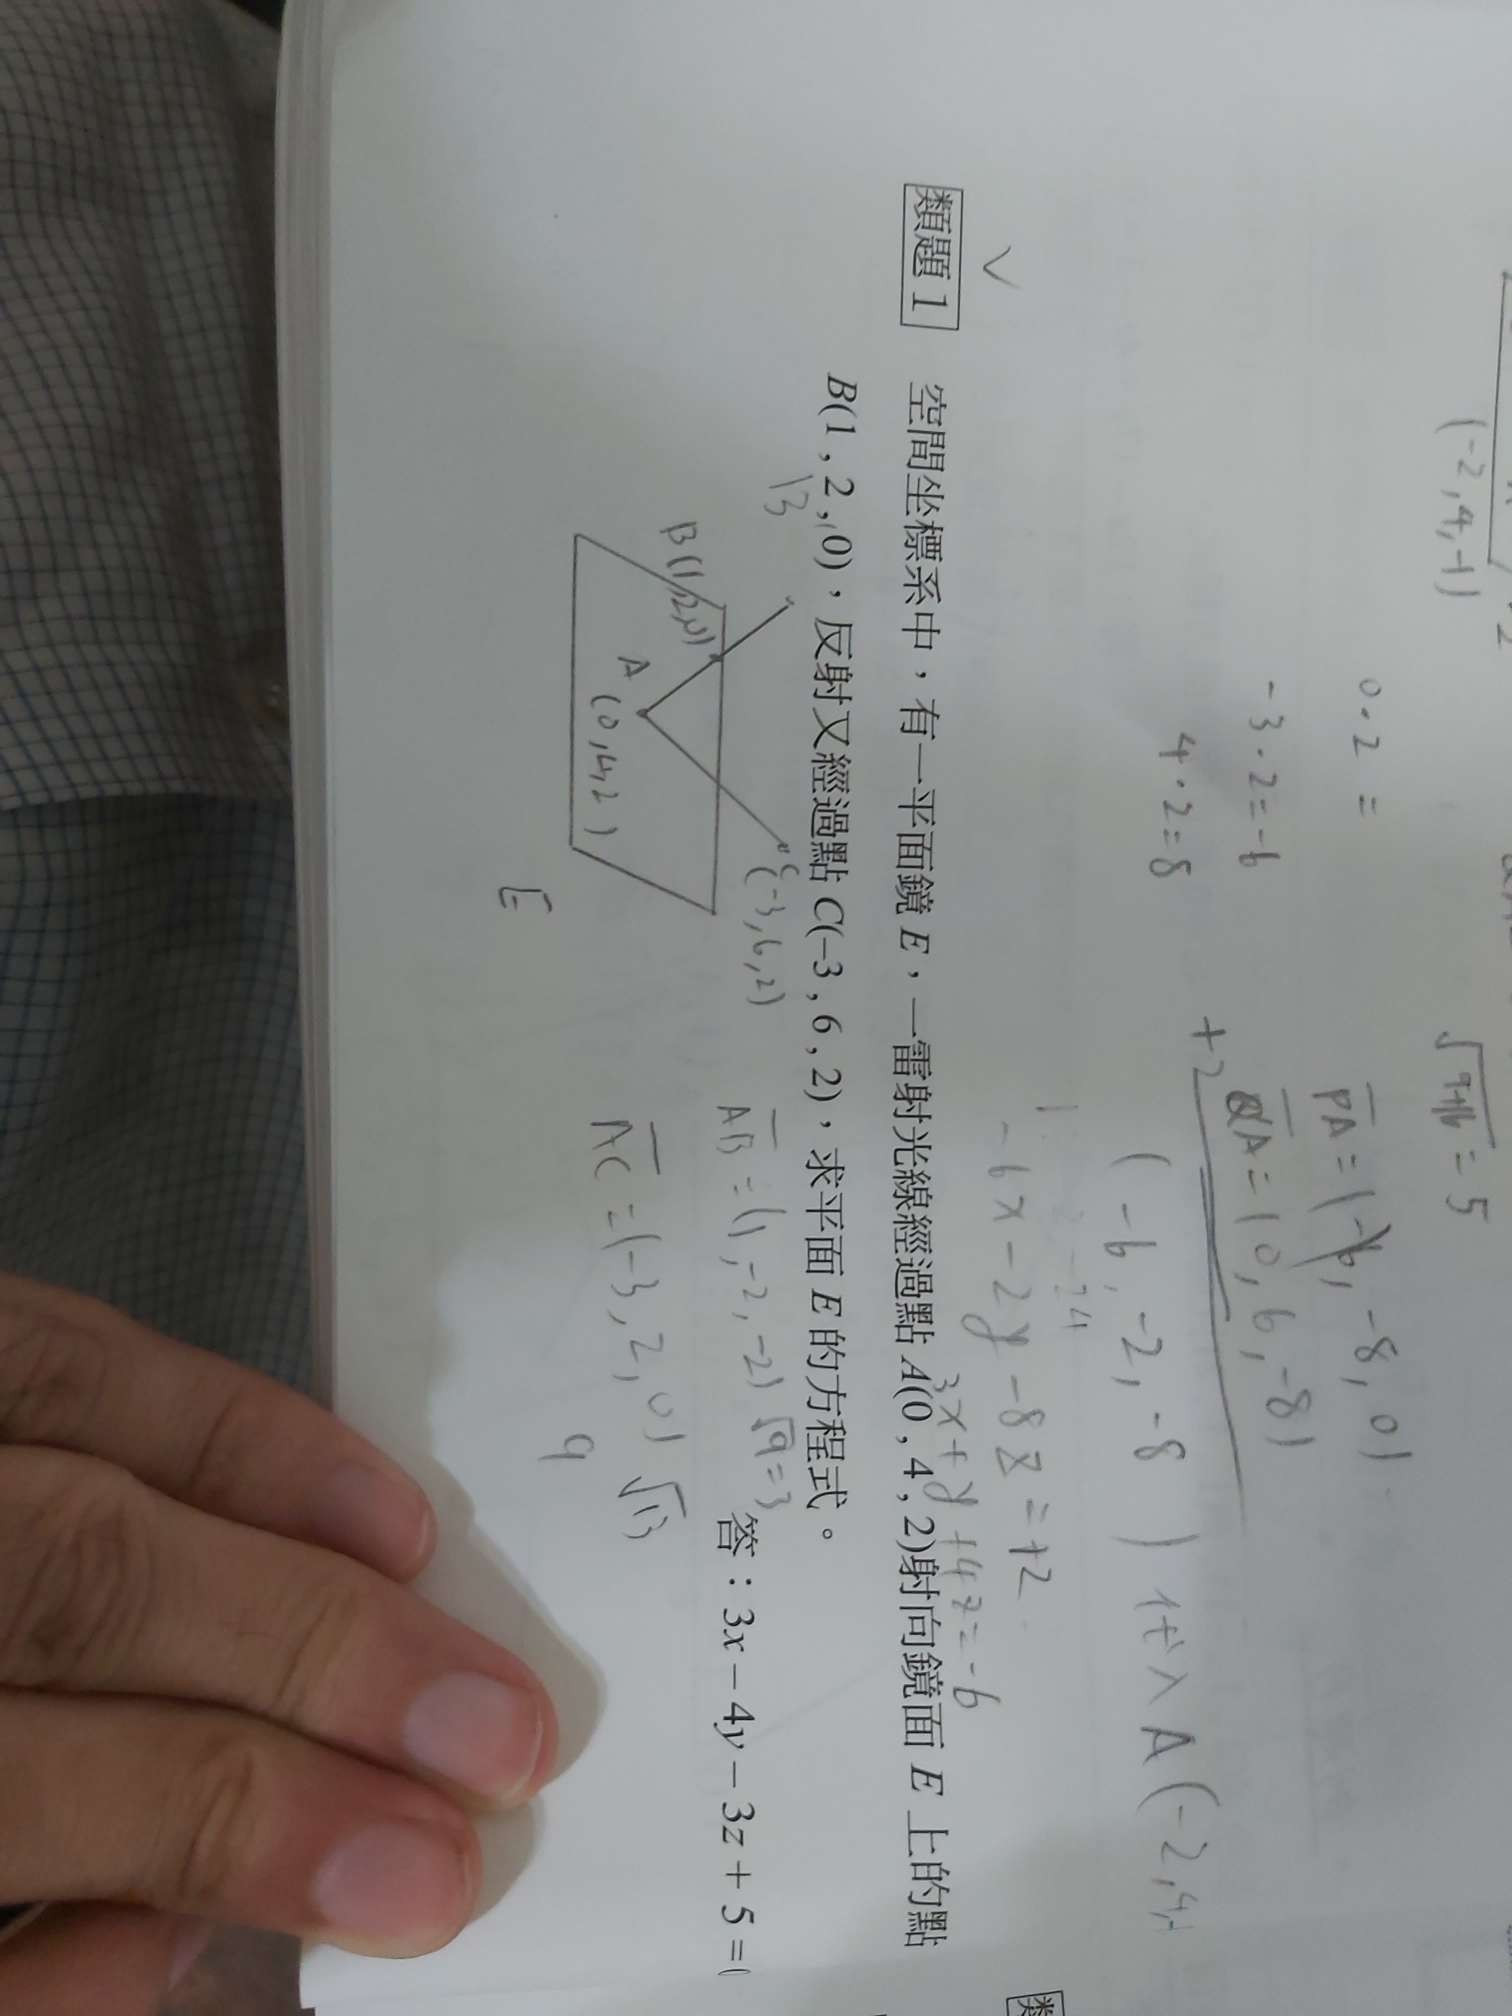 (-2,4,-1)
√9+16 = 5
0·2 =
PA = (-6, -8, 0)
-3·2=-6
QA = (0, 6, -8)
4·2=8
+2
(-6, -2, -8) 代入 A(-2,4,-1
-6x-2y-8z=+2
3x+y+4z=-6
類題 1 空間坐標系中，有一平面鏡 E，一雷射光線經過點 A(0 , 4 , 2)射向鏡面 E 上的點
B(1 , 2 , 0)，反射又經過點 C(–3 , 6 , 2)，求平面 E 的方程式。
答：3x – 4y – 3z + 5 = 0
13
C(-3,6,2)
AB = (1, -2, -2) √9=3
B(1,2,0)
A
(0,4,2)
AC = (-3, 2, 0) √13
9
E